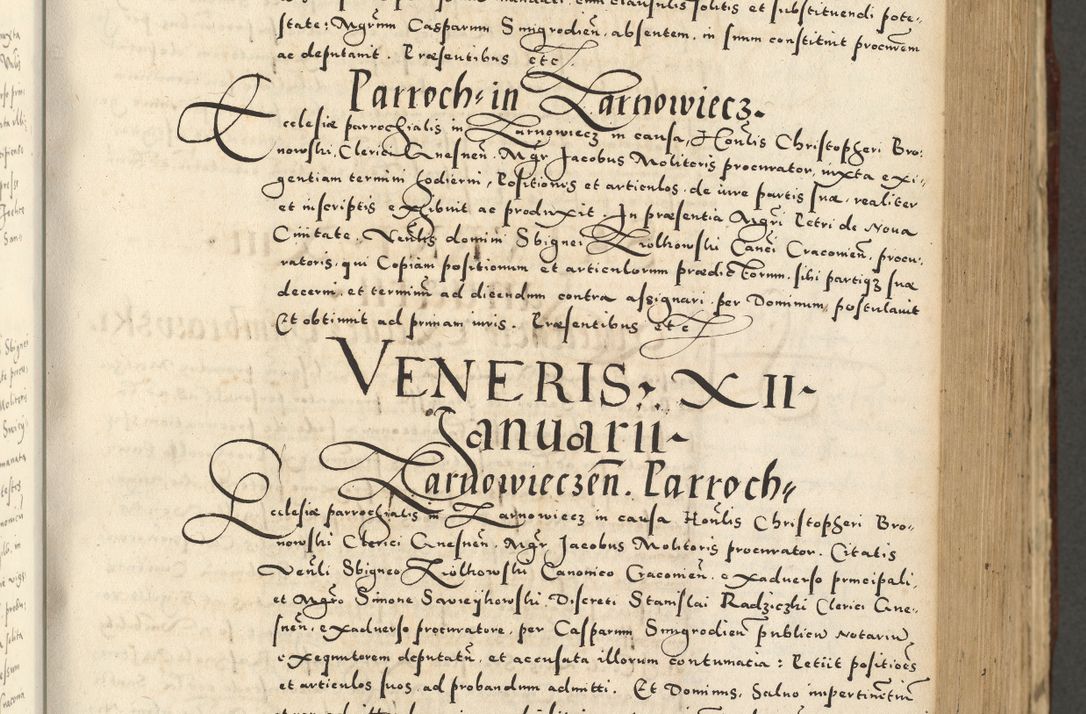 state: Mgrum Casparum Smigrodien̄, absentem, in suum constituit procurem
ac deputavit. Præsentibus etc.
Parroch: in Zarnowiecz.
Ecclesiæ parrochialis in Zarnowiecz in causa, Honlis Christopheri Bro:
nowski, Clerici Gnesnen̄. Mgr Jacobus Molitoris procurator, iuxta exi:
gentiam termini hodierni, Positiones et articulos, de iure partis suæ, realiter
et in scriptis exhibuit ac produxit. In præsentia Mgri Petri de Nova
Civitate, Venlis domini Sbignei Ziolkowski Canci Cracovien̄, procu:
ratoris, qui Copiam positionum et articulorum prædictorum, sibi partiq3 suæ
decerni, et terminū ad dicendum contra assignari, per Dominum, postulavit
Et obtinuit ad primam iuris. Præsentibus etc.
VENERIS, XII
Januarii
Zarnowieczen̄. Parroch:
Ecclesiæ parrochialis in Zarnowiecz in causa Honlis Christopheri Bro:
nowski Clerici Gnesnen̄. Mgr Jacobus Molitoris procurator. Citatis
Venli Sbigneo Ziolkowski Canonico Cracovien̄. exadverso principali,
et Mgro Simone Sawieykowski, Discreti Stanislai Radziczki Clerici Gne:
snen̄. exadverso procuratore, per Casparum Smigrodien̄ publicū Notariū,
exequutorem deputatū, et accusata illorum contumatia: Petiit positioēs
et articulos suos, ad probandum admitti. Et Dominus, Salvo impertinētiū